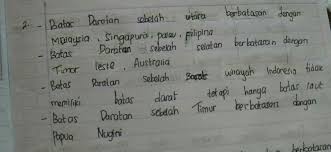 2. - Batas Daratan sebelah utara berbatasan dengan
Malaysia, Singapura, palau, pilipina
- Batas Daratan sebelah selatan berbatasan dengan
Timor leste, Australia
- Batas Daratan sebelah Barat wilayah Indonesia tidak
memiliki batas darat tetapi hanya batas laut
- Batas Daratan sebelah Timur berbatasan dengan
Papua Nugini
berbatasan